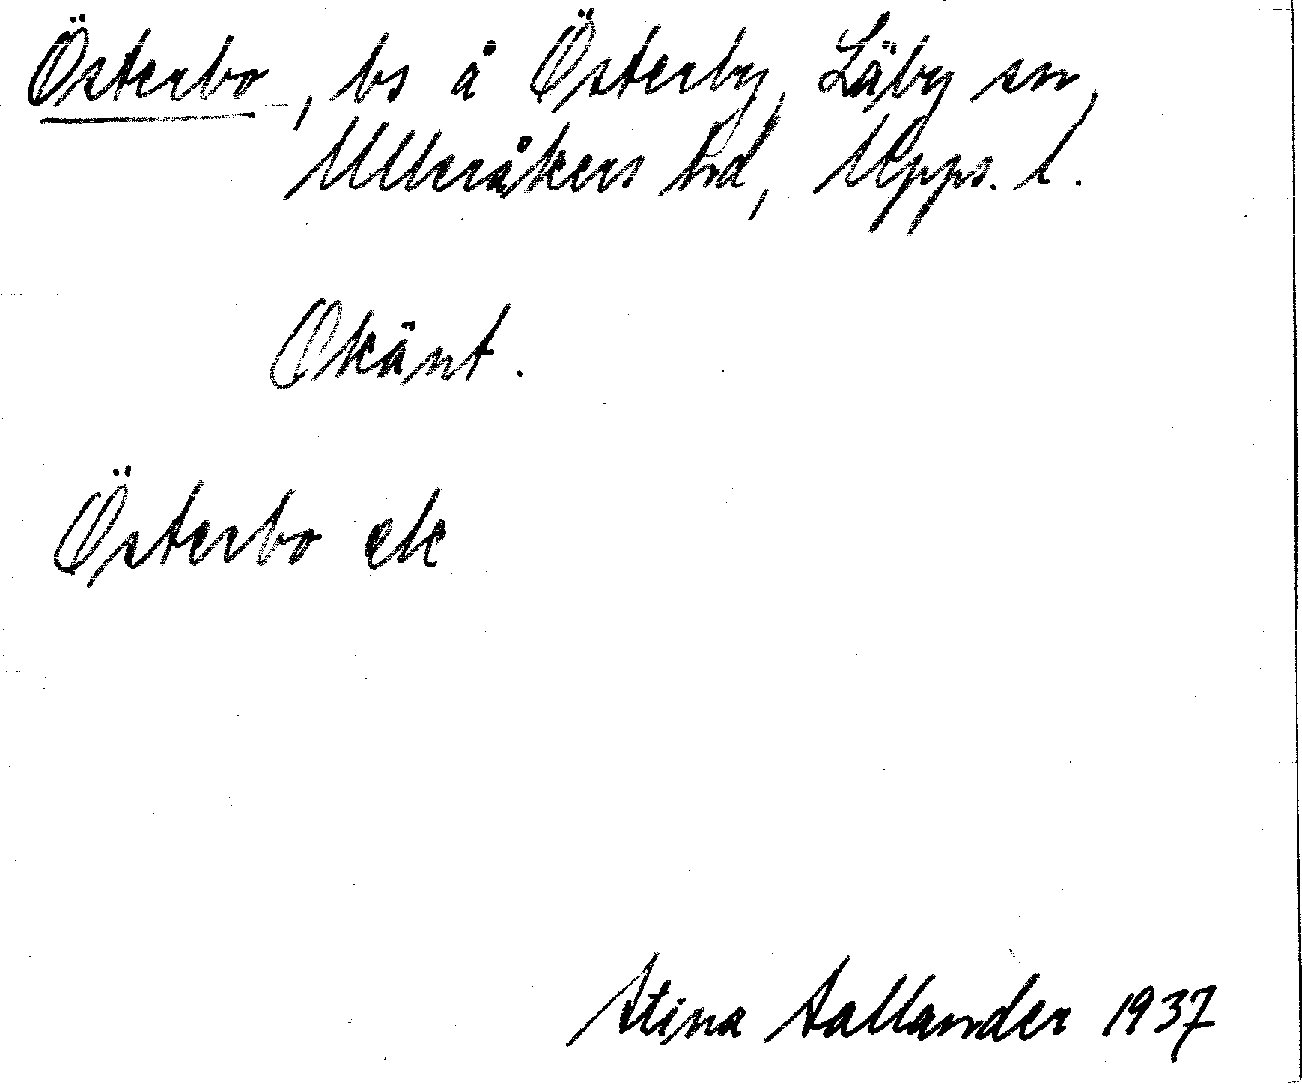 Österbo, bs å Österby, Läby sn,
Ulleråkers hd, Upps. l.
Okänt.
Österbo ek
Stina Sallander 1937